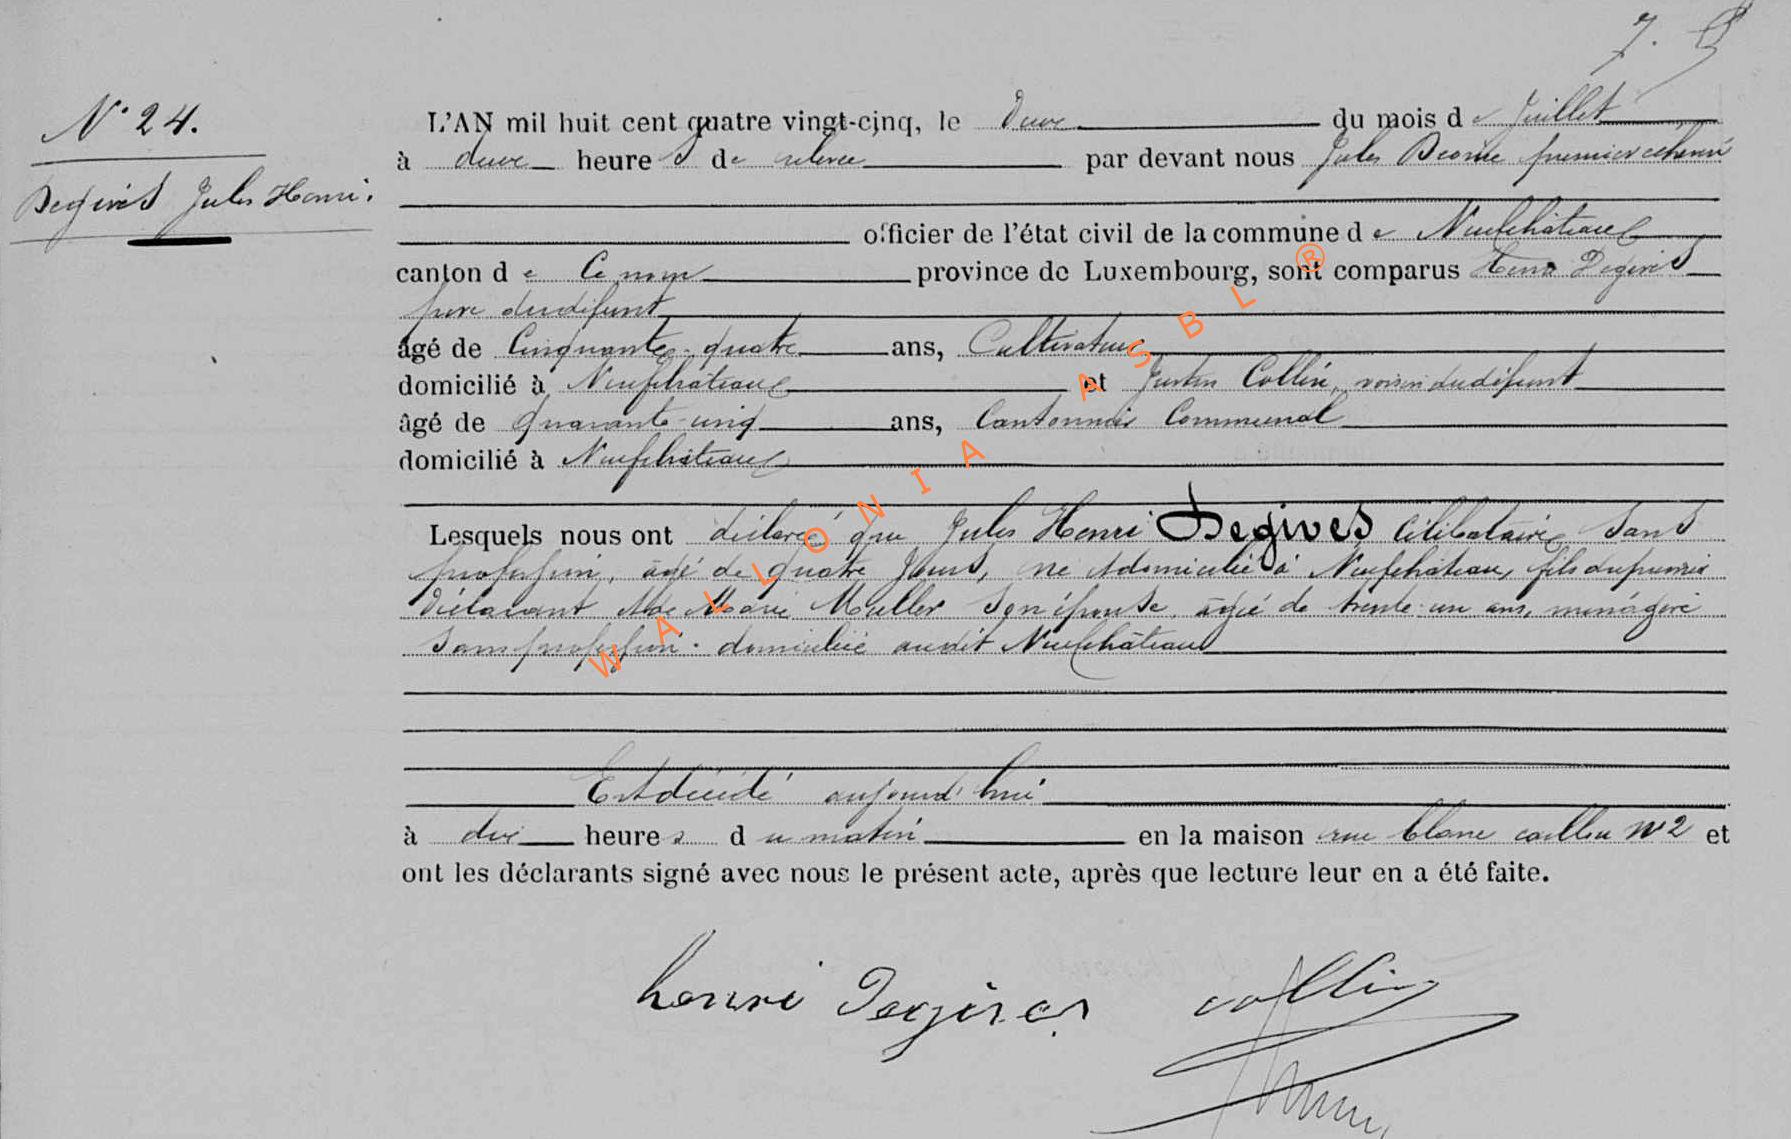 7.
N° 24.
Degives Jules Henri.
L'AN mil huit cent quatre vingt-cinq, le Deux du mois de Juillet
à deux heures de relevée par devant nous Jules premier échevin
officier de l'état civil de la commune de Neufchâteau
canton de Ce nom province de Luxembourg, sont comparus Henri Degives
père dudéfunt
âgé de Cinquante-quatre ans, Cultivateur
domicilié à Neufchâteau et Justin Collin, voisin dudéfunt
âgé de quarante-cinq ans, Cantonnier Communal
domicilié à Neufchâteau
Lesquels nous ont déclaré que Jules Henri Degives Célibataire Sans
profession, âgé de quatre Jours, né & domicilié à Neufchâteau, fils dupremier
Déclarant & de Marie Muller Son épouse, âgée de trente-un ans, ménagère
Sans profession. domiciliée audit Neufchâteau
Est décédé aujourd'hui
à dix heures du matin en la maison rue blanc caillou N° 2 et
ont les déclarants signé avec nous le présent acte, après que lecture leur en a été faite.
henri Degives collin
WALLONIA ASBL ®